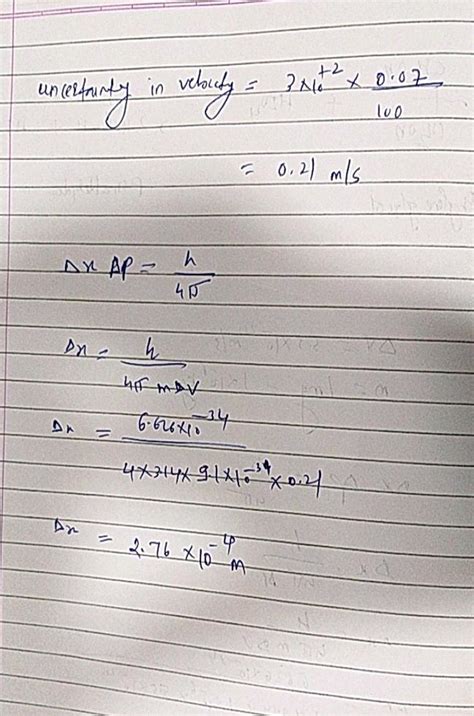 uncertainty in velocity = 3×10⁺² × 0.07/100
= 0.21 m/s
Δx ΔP = h/4π
Δx = h/4π mΔV
Δx = 6.626×10⁻³⁴/4×3.14×9.1×10⁻³⁴×0.21
Δx = 2.76 ×10⁻⁴ m